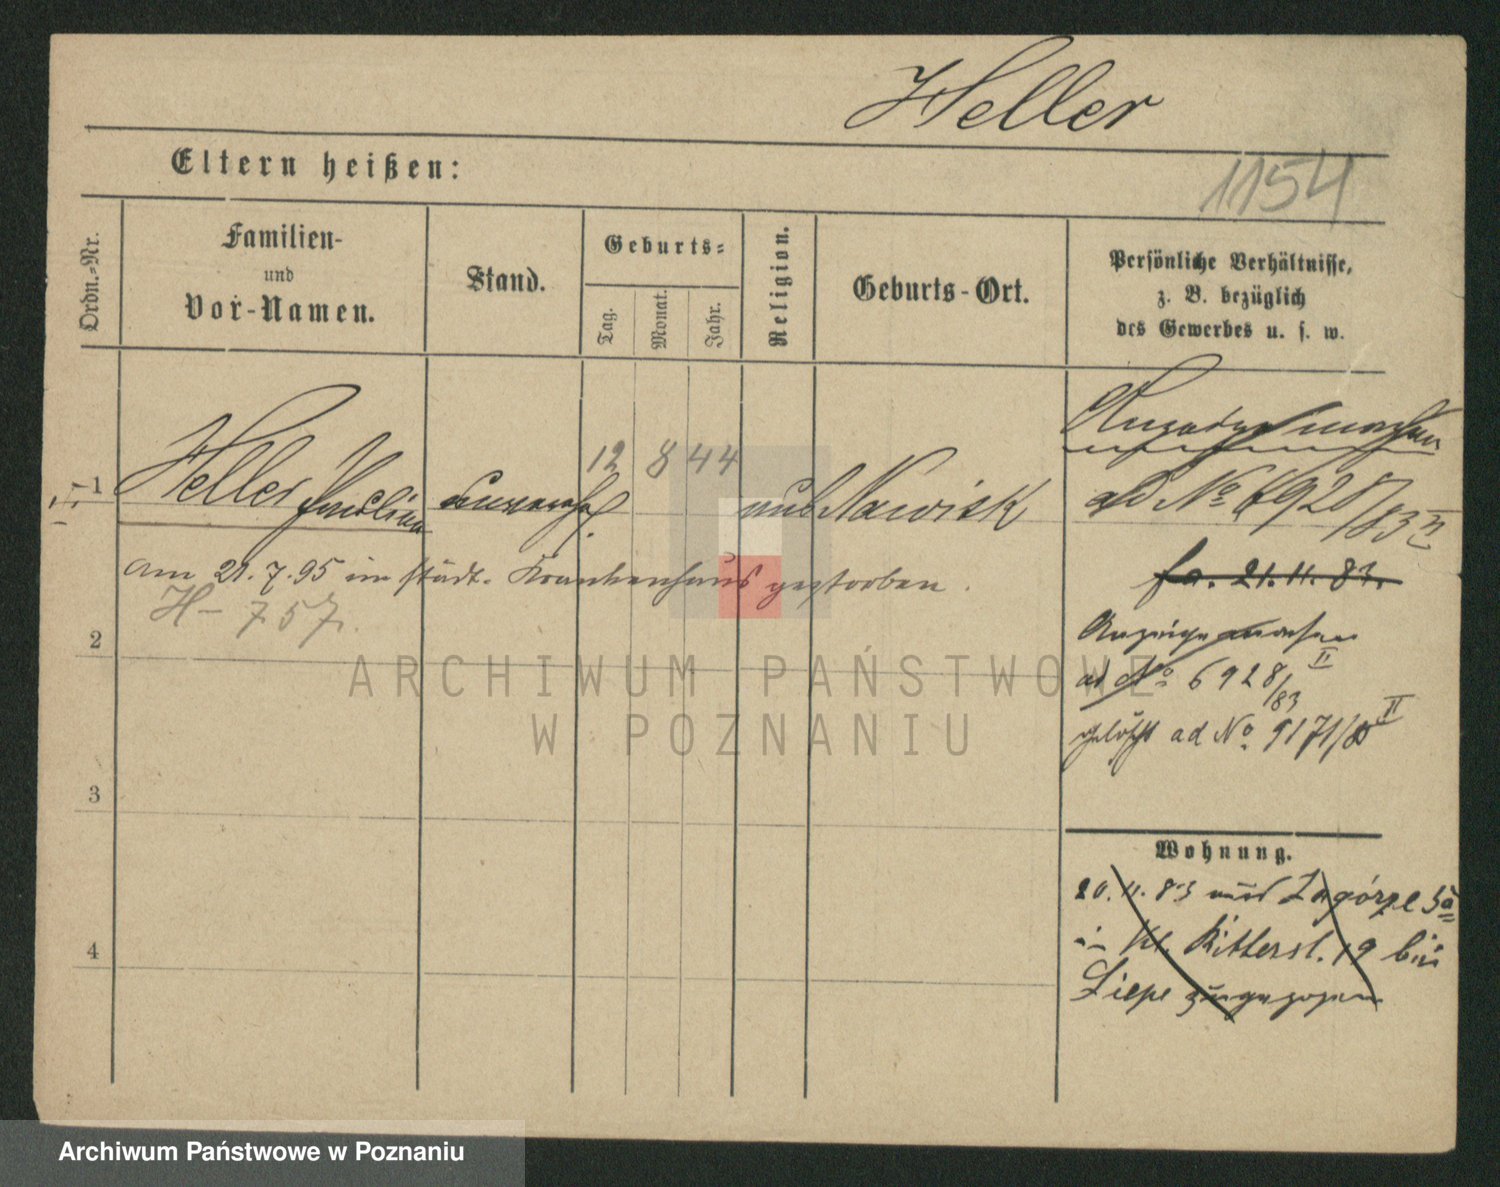 Heller
1154
Eltern heißen:
Ordn.-Nr.
Familien-
und
Vor-Namen.
Stand.
Geburts-
Tag.
Monat.
Jahr.
Religion.
Geburts-Ort.
Persönliche Verhältnisse,
z. B. bezüglich
des Gewerbes u. s. w.
1
Heller
12 8 44
ad No 6928/83 II
am 21.7.95 im städt. Krankenhaus gestorben.
H- 757.
fa. 21.11.83.
2
Anzeige
ad No 6928/83 II
gelöscht ad No 9171/85 II
3
Wohnung.
20.11.83 aus Zagórze 5a
in Kl. Ritterst. 19 bei
Liepe zugezogen
4
ARCHIWUM PAŃSTWOWE
W POZNANIU
Archiwum Państwowe w Poznaniu